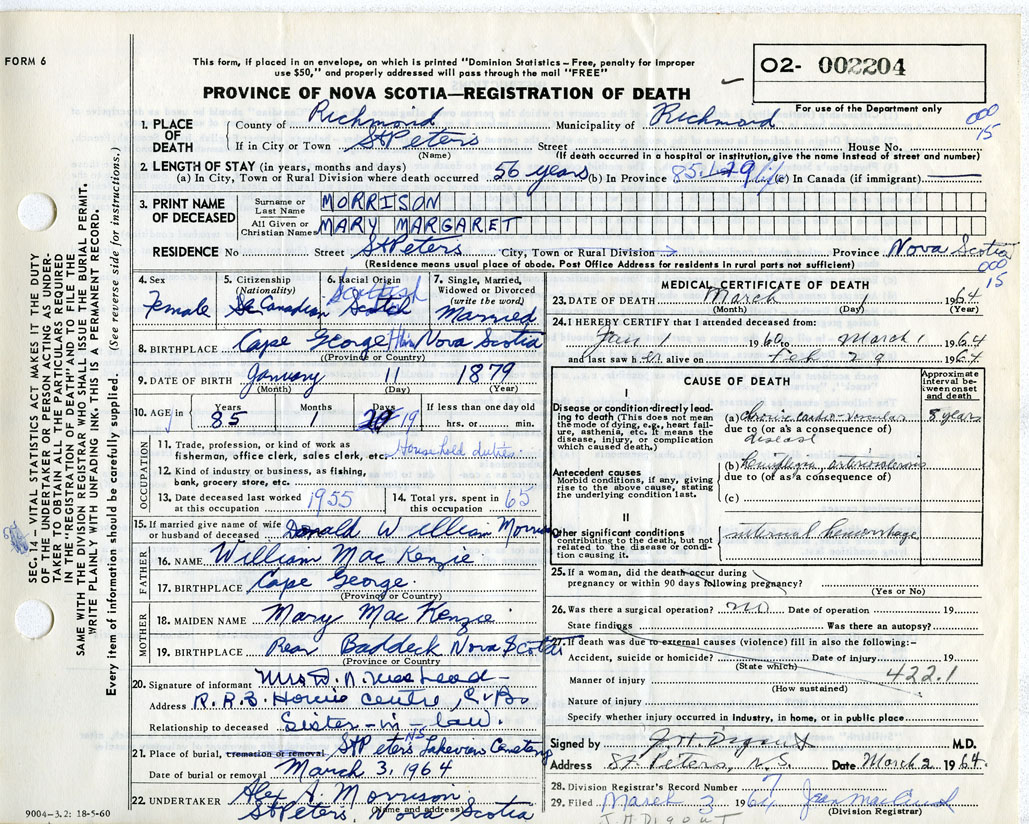 FORM 6
This form, if placed in an envelope, on which is printed "Dominion Statistics—Free, penalty for improper
use $50," and properly addressed will pass through the mail "FREE"
O2- 002204
For use of the Department only
PROVINCE OF NOVA SCOTIA—REGISTRATION OF DEATH
000
15
1. PLACE OF DEATH
County of Richmond Municipality of Richmond
If in City or Town St Peters Street House No.
(Name) (If death occurred in a hospital or institution, give the name instead of street and number)
2. LENGTH OF STAY (in years, months and days)
(a) In City, Town or Rural Division where death occurred 56 years (b) In Province 85 (c) In Canada (if immigrant)
3. PRINT NAME OF DECEASED
Surname or Last Name MORRISON
All Given or Christian Names MARY MARGARET
RESIDENCE No Street St Peters City, Town or Rural Division → Province Nova Scotia
(Residence means usual place of abode. Post Office Address for residents in rural parts not sufficient)
000
15
4. Sex Female
5. Citizenship (Nationality) Canadian
6. Racial Origin Scottish Scotch
7. Single, Married, Widowed or Divorced (write the word) Married
8. BIRTHPLACE Cape George Nova Scotia
(Province or Country)
9. DATE OF BIRTH January 11 1879
(Month) (Day) (Year)
10. AGE in Years Months Days If less than one day old
85 1 19 hrs. or min.
OCCUPATION
11. Trade, profession, or kind of work as
fisherman, office clerk, sales clerk, etc. Household duties
12. Kind of industry or business, as fishing,
bank, grocery store, etc.
13. Date deceased last worked at this occupation 1955
14. Total yrs. spent in 65
15. If married give name of wife
or husband of deceased Donald William Morrison
FATHER
16. NAME William Mac Kenzie
17. BIRTHPLACE Cape George.
(Province or Country)
MOTHER
18. MAIDEN NAME Mary Mac Kenzie
19. BIRTHPLACE Rear Baddeck Nova Scotia
(Province or Country)
20. Signature of informant Mrs D. N. Mac Leod
Address R.R.B. Howie Centre, C. Bo
Relationship to deceased Sister-in-law.
21. Place of burial, cremation or removal St Peters NS Lakeview Cemetery
Date of burial or removal March 3, 1964
22. UNDERTAKER Alex A. Morrison
(Name and address)
St Peters, Nova Scotia
MEDICAL CERTIFICATE OF DEATH
23. DATE OF DEATH March 1 1964
(Month) (Day) (Year)
24. I HEREBY CERTIFY that I attended deceased from:
Jan 1 1960 to March 1 1964
and last saw her alive on Feb 29 1964.
CAUSE OF DEATH
Approximate interval between onset and death
I
Disease or condition directly leading to death (This does not mean the mode of dying, e.g., heart failure, asthenia, etc. It means the disease, injury, or complication which caused death.)
(a) Chronic cardio-vascular 8 years
due to (or as a consequence of)
disease
Antecedent causes
Morbid conditions, if any, giving rise to the above cause, stating the underlying condition last.
(b) arteriosclerosis
due to (or as a consequence of)
(c)
II
Other significant conditions
contributing to the death, but not related to the disease or condition causing it.
internal hemorrhage
25. If a woman, did the death occur during
pregnancy or within 90 days following pregnancy?
(Yes or No)
26. Was there a surgical operation? no Date of operation 19
State findings Was there an autopsy?
27. If death was due to external causes (violence) fill in also the following:-
Accident, suicide or homicide? Date of injury 19
(State which)
Manner of injury 422.1
(How sustained)
Nature of injury
Specify whether injury occurred in Industry, in home, or in public place
Signed by J. H. Digout M.D.
Address St. Peters, N.S. Date March 2 1964.
28. Division Registrar's Record Number 7
29. Filed March 3 1964 Jean
(Division Registrar)
J. H. DIGOUT
SEC. 14 - VITAL STATISTICS ACT MAKES IT THE DUTY
OF THE UNDERTAKER OR PERSON ACTING AS UNDER-
TAKER TO OBTAIN ALL THE PARTICULARS REQUIRED
IN THE "REGISTRATION OF DEATH" AND TO FILE THE
SAME WITH THE DIVISION REGISTRAR WHO SHALL ISSUE THE BURIAL PERMIT.
WRITE PLAINLY WITH UNFADING INK. THIS IS A PERMANENT RECORD.
Every item of information should be carefully supplied. (See reverse side for instructions.)
9004-3.2: 18-5-60